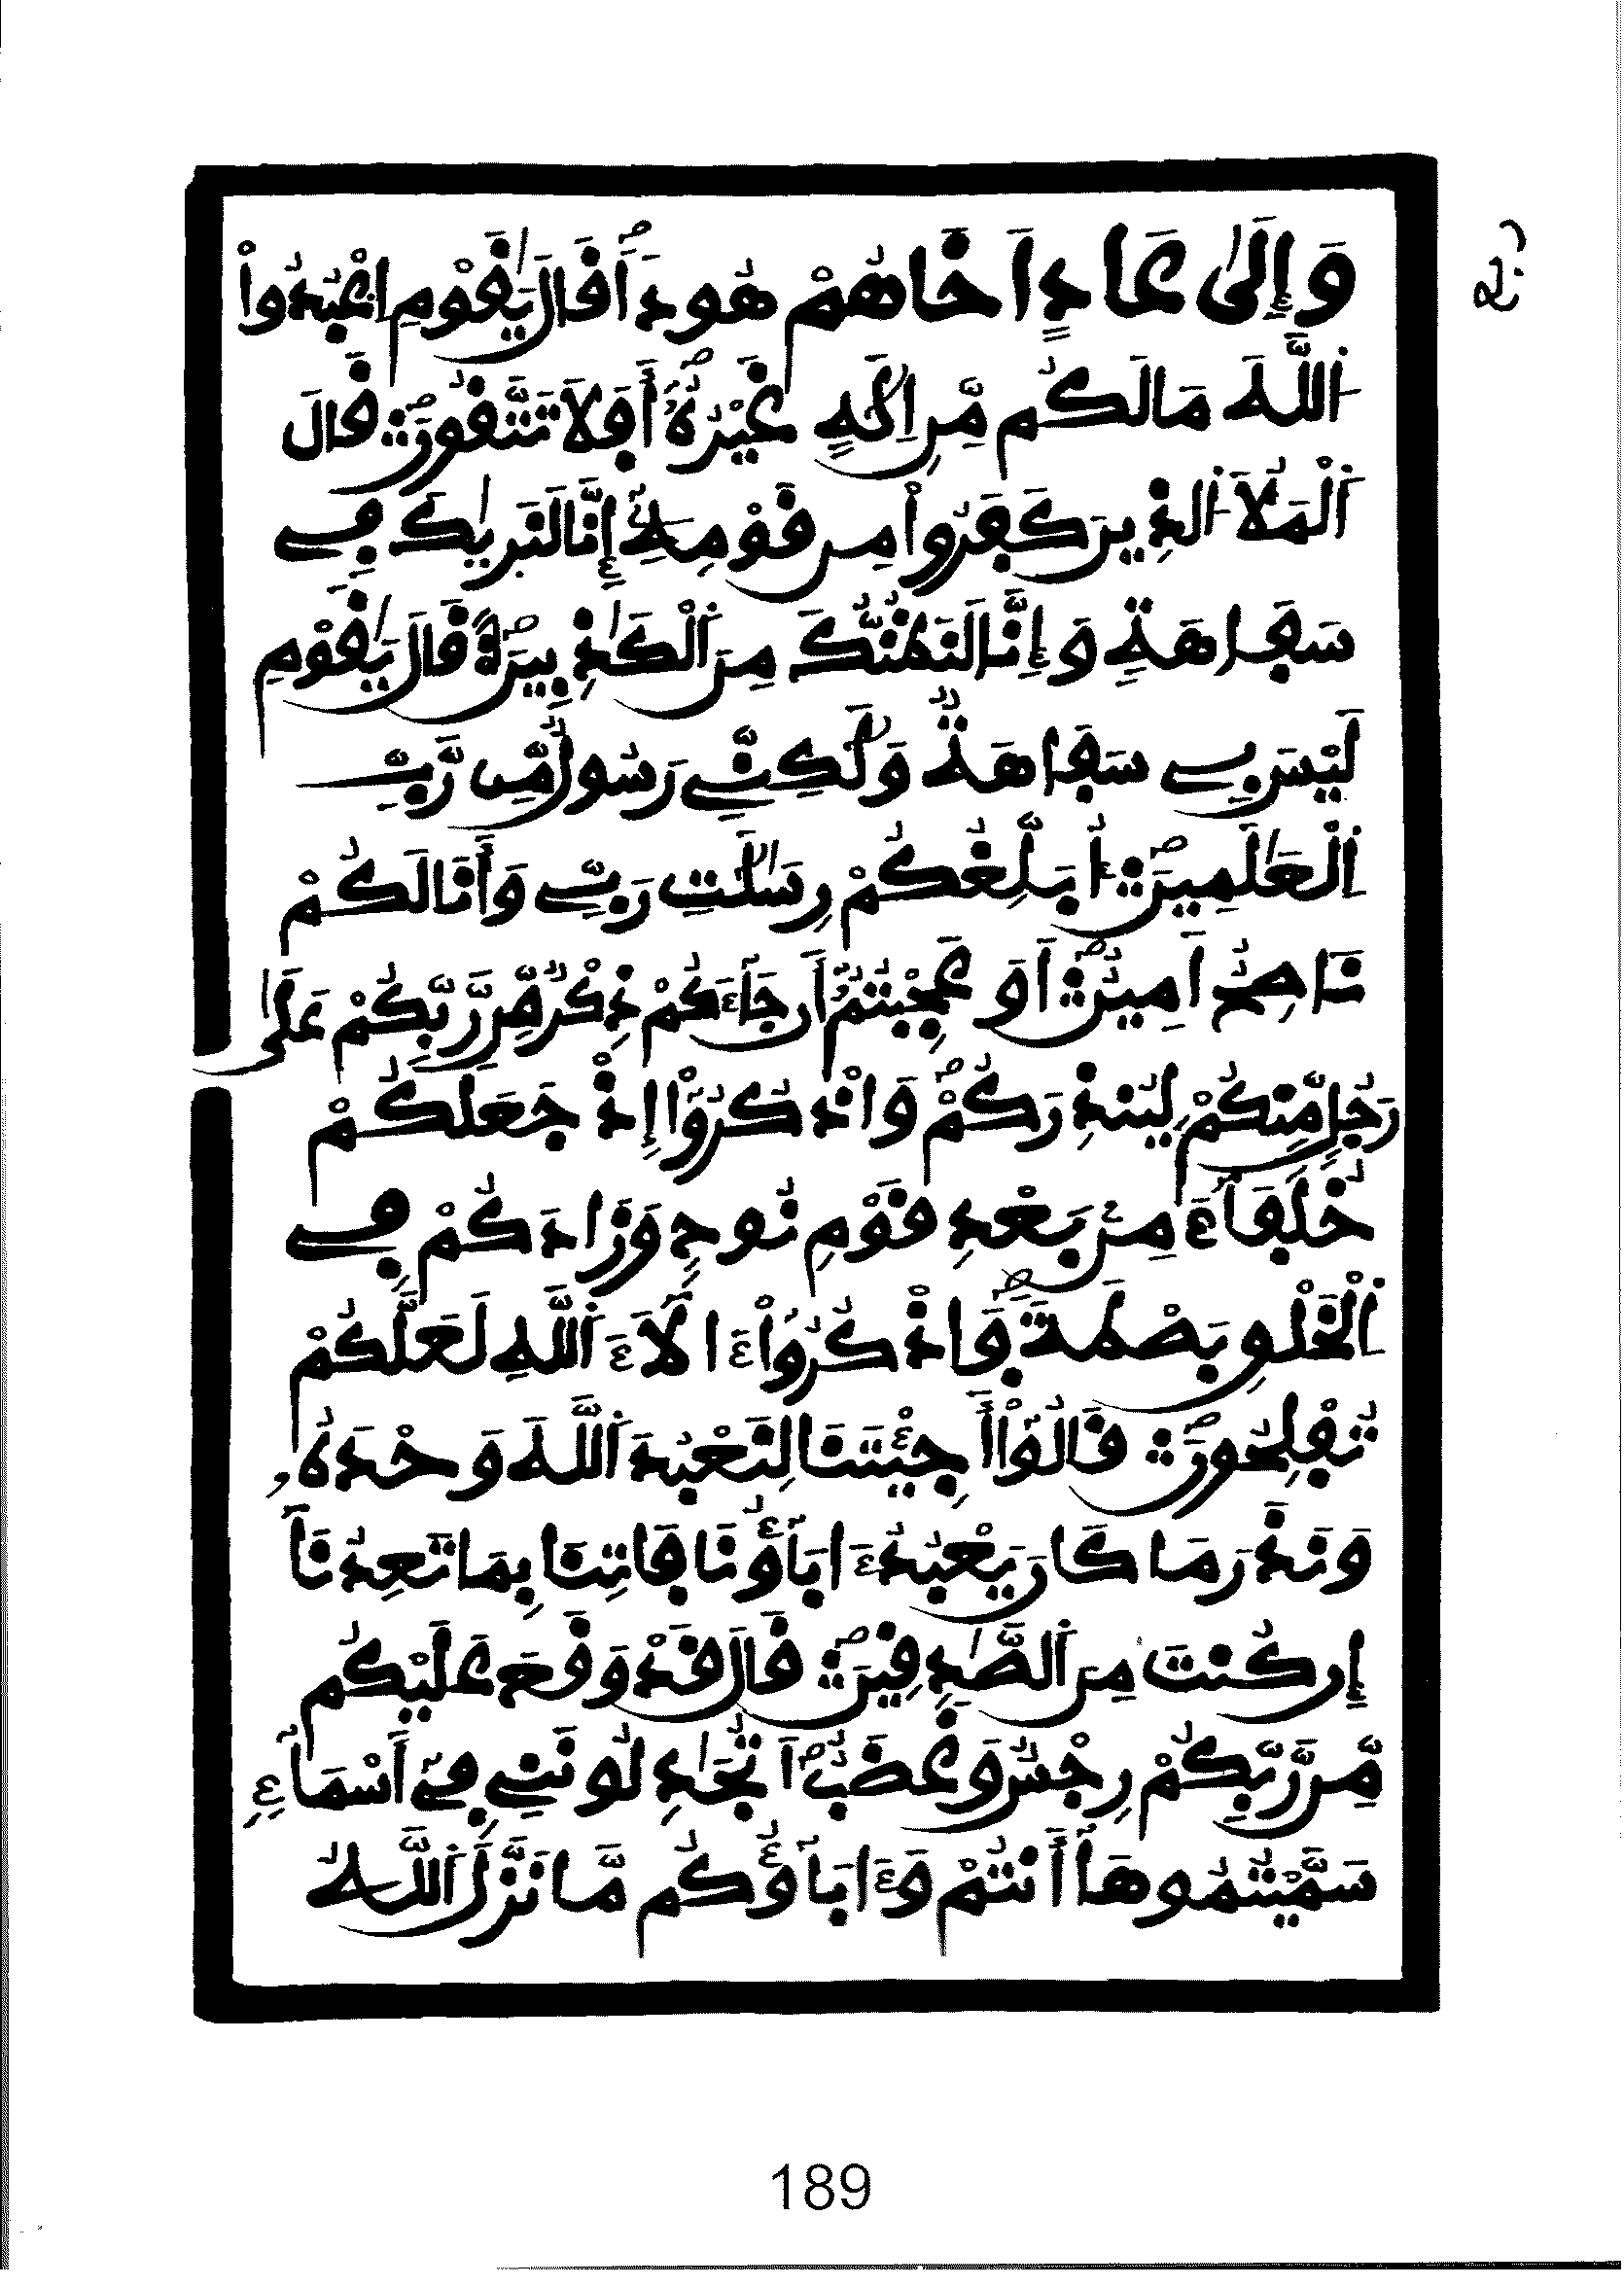 ربع
وَإِلَىٰ عَادٍ اَخَاهُمْ هُودًا قَالَ يَٰقَوْمِ اِعْبُدُواْ
اَللَّهَ مَا لَكُم مِّنِ اِلَٰهٍ غَيْرُهُۥ أَفَلَا تَتَّقُونَ ۞ قَالَ
اَلْمَلَأُ اَلذِينَ كَفَرُواْ مِن قَوْمِهِۦ إِنَّا لَنَرَىٰكَ فِي
سَفَاهَةٍ وَإِنَّا لَنَظُنُّكَ مِنَ اَلْكَٰذِبِينَ ۞ قَالَ يَٰقَوْمِ
لَيْسَ بِي سَفَاهَةٌ وَلَٰكِنِّي رَسُولٌ مِّن رَّبِّ
اِلْعَٰلَمِينَ ۞ أُبَلِّغُكُمْ رِسَٰلَٰتِ رَبِّي وَأَنَا لَكُمْ
نَاصِحٌ اَمِينٌ ۞ اَوَعَجِبْتُمُۥٓ أَن جَآءَكُمْ ذِكْرٌ مِّن رَّبِّكُمْ عَلَىٰ
رَجُلٍ مِّنكُمْ لِيُنذِرَكُمْ وَاذْكُرُوٓاْ إِذْ جَعَلَكُمْ
خُلَفَآءَ مِنۢ بَعْدِ قَوْمِ نُوحٍ وَزَادَكُمْ فِي
اِلْخَلْقِ بَصْطَةً فَاذْكُرُوٓاْ ءَالَآءَ اَللَّهِ لَعَلَّكُمْ
تُفْلِحُونَ ۞ قَالُوٓاْ أَجِئْتَنَا لِنَعْبُدَ اَللَّهَ وَحْدَهُۥ
وَنَذَرَ مَا كَانَ يَعْبُدُ ءَابَآؤُنَا فَاتِنَا بِمَا تَعِدُنَآ
إِن كُنتَ مِنَ اَلصَّٰدِقِينَ ۞ قَالَ قَدْ وَقَعَ عَلَيْكُم
مِّن رَّبِّكُمْ رِجْسٌ وَغَضَبٌ اَتُجَٰدِلُونَنِي فِيٓ أَسْمَآءٍ
سَمَّيْتُمُوهَآ أَنتُمْ وَءَابَآؤُكُم مَّا نَزَّلَ اَللَّهُ
189